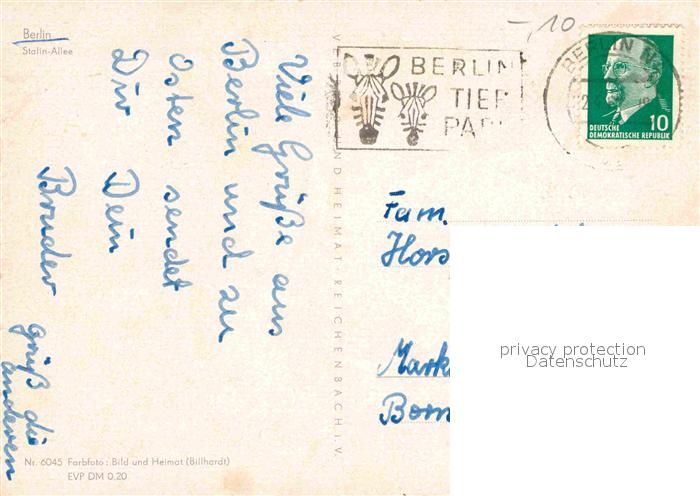 Berlin
Stalin-Allee
Viele Grüße aus
Berlin und zu
Ostern sendet
Dir Dein
Bruder
grüß die
anderen
Nr. 6045 Farbfoto: Bild und Heimat (Billhardt)
EVP DM 0,20
UND HEIMAT · REICHENBACH i. V.
10
BERLIN
TIER
BERLIN
DEUTSCHE
DEMOKRATISCHE REPUBLIK
10
Fam.
Hors
Mark
Born
privacy protection
Datenschutz